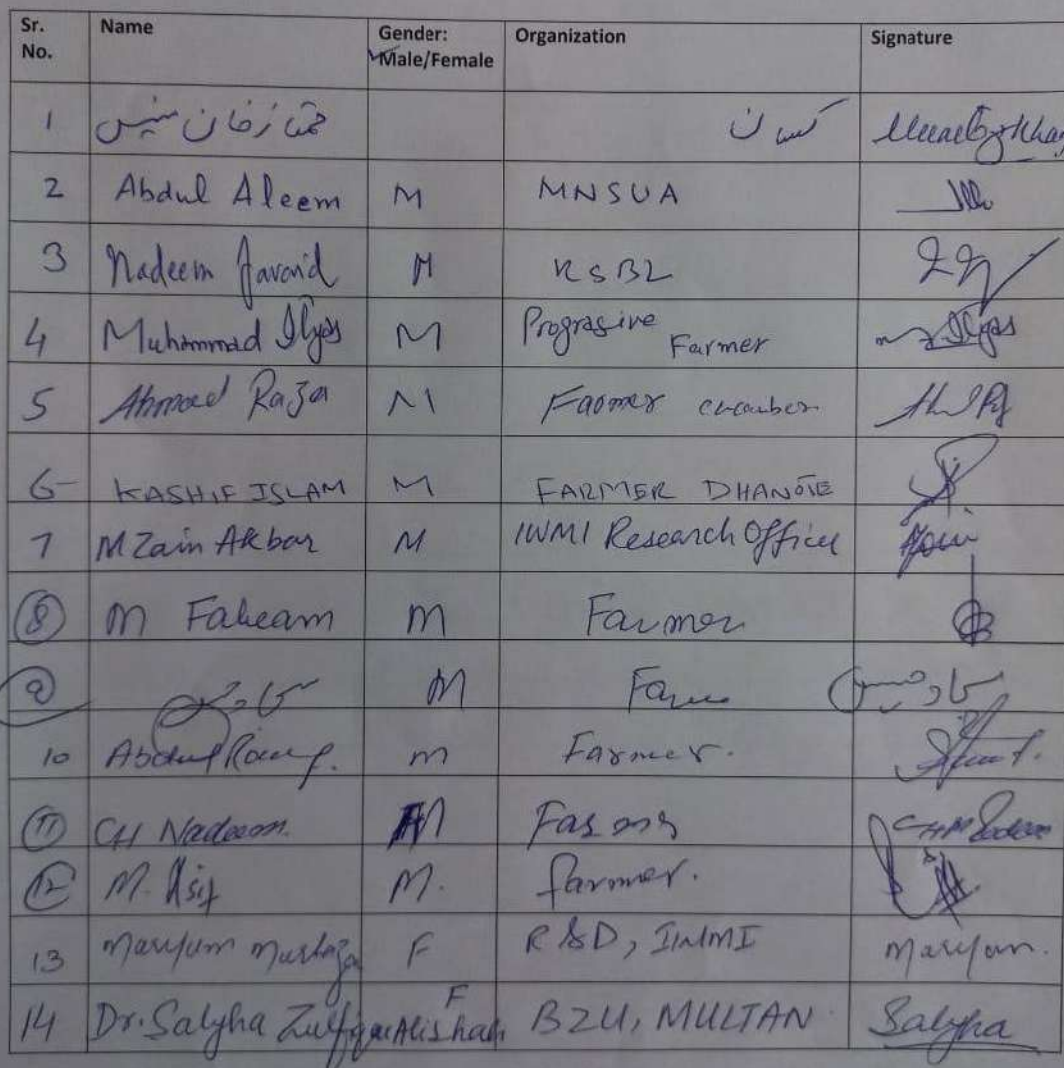 Sr. No. Name Gender: Male/Female Organization Signature
1 ممتاز خان منیس کسان Mumtaz Khan
2 Abdul Aleem M MNSUA
3 Nadeem Javaid M KSBL
4 Muhammad Ilyas M Prograsive Farmer Ilyas
5 Ahmad Raza M Farmer chamber
6 KASHIF ISLAM M FARMER DHANOTE
7 M Zain Akbar M IWMI Research Officer
8 M Faheam M Farmer
9 M
10 Abdul Rauf. M Farmer.
11 CH Nadeem. M CH Nadeem
12 M. Asif M. farmer.
13 Maryum Murtaza F R&D, IWMI Maryum.
14 Dr. Salyha Zulfiqar Ali Shah F BZU, MULTAN Salyha